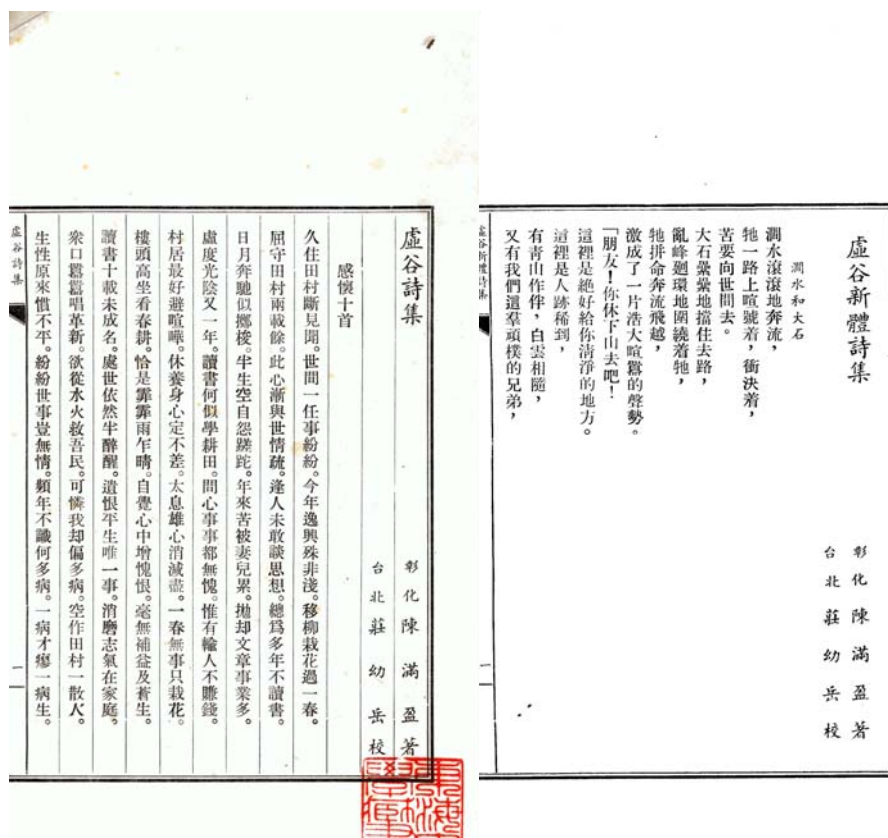 虛谷新體詩集
彰化陳滿盈著
台北莊幼岳校
澗水和大石
澗水滾滾地奔流，
牠一路上喧號着，衝決着，
苦要向世間去。
大石纍纍地擋住去路，
亂峰廻環地圍繞着牠，
牠拼命奔流飛越，
激成了一片浩大喧囂的聲勢。
「朋友！你休下山去吧！
這裡是絕好給你清淨的地方。
這裡是人跡稀到，
有青山作伴，白雲相隨，
又有我們這羣頑樸的兄弟，
虛谷新體詩集
一
虛谷詩集
彰化陳滿盈著
台北莊幼岳校
感懷十首
久住田村斷見聞。世間一任事紛紛。今年逸興殊非淺。移柳栽花過一春。
屈守田村兩載餘。此心漸與世情疏。逢人未敢談思想。總爲多年不讀書。
日月奔馳似擲梭。半生空自怨蹉跎。年來苦被妻兒累。拋却文章事業多。
虛度光陰又一年。讀書何似學耕田。問心事事都無愧。惟有輸人不賺錢。
村居最好避喧嘩。休養身心定不差。太息雄心消滅盡。一春無事只栽花。
樓頭高坐看春耕。恰是霏霏雨乍晴。自覺心中增愧恨。毫無補益及蒼生。
讀書十載未成名。處世依然半醉醒。遺恨平生唯一事。消磨志氣在家庭。
衆口囂囂唱革新。欲從水火救吾民。可憐我却偏多病。空作田村一散人。
生性原來慣不平。紛紛世事豈無情。頻年不識何多病。一病才瘳一病生。
虛谷詩集
一